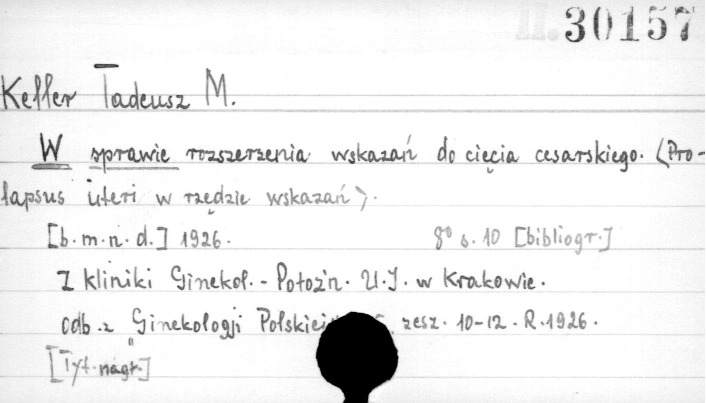 II. 30157
Keller Tadeusz M.
W sprawie rozszerzenia wskazań do cięcia cesarskiego. (Pro-
lapsus uteri w rzędzie wskazań).
[b.m.n.d.] 1926. 8° s. 10 [bibliogr.]
Z kliniki Ginekoł.-Położn. U.J. w Krakowie.
odb. z "Ginekologji Polskiej zesz. 10-12. R. 1926.
[Tyt. nagł.]